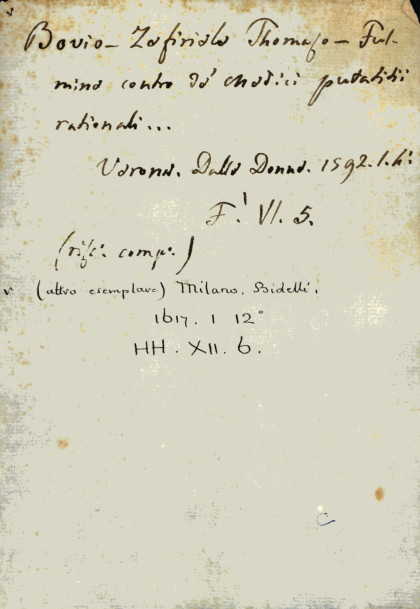 Bovio - Zefiriele Thomaso - Ful-
mine contro de' Medici putatitii
rationali...
Verona. Dalle Donne. 1592. 1. 4º
F.' VI. 5.
(rifº. compº.)
v (altro esemplare) Milano. Bidelli.
1617. 1 12º
HH. XII. 6.
C